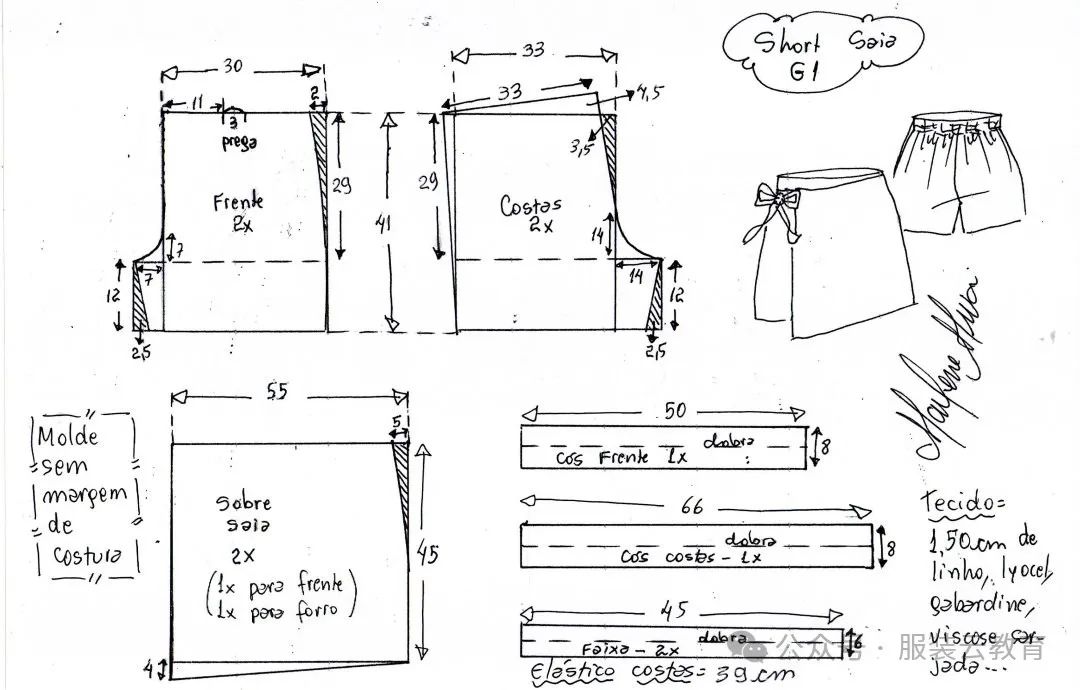 Short Saia
G1
30
11
2
3
prega
29
Frente
2x
7
7
12
2,5
41
33
33
4,5
3,5
29
Costas
2x
14
14
12
2,5
Molde
sem
margem
de
costura
55
5
45
Sobre
saia
2x
(1x para frente
1x para forro)
4
50
dobra
cós Frente 1x
8
66
dobra
cós costas - 1x
8
45
dobra
Faixa - 2x
6
Elástico costas = 39 cm
Tecido=
1,50cm de
linho, lyocel,
gabardine,
viscose sar-
jada...
公众号 · 服装云教育